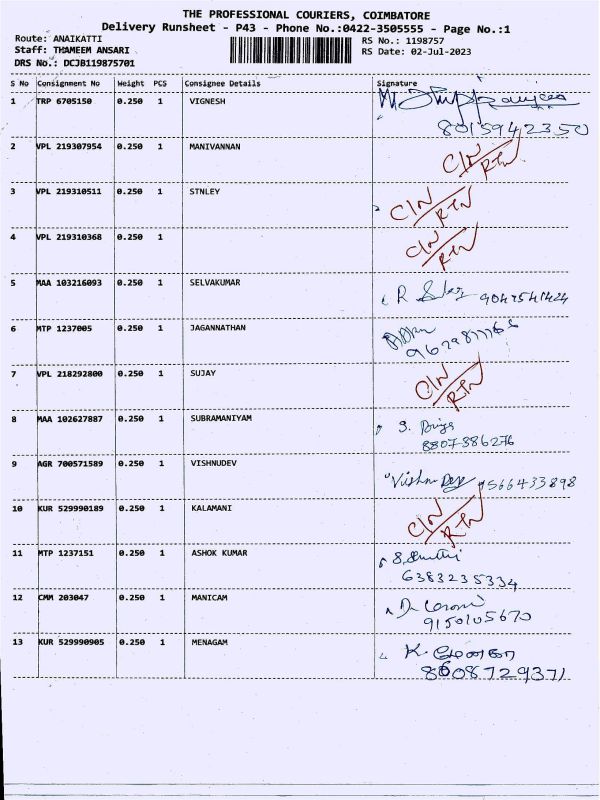 THE PROFESSIONAL COURIERS, COIMBATORE
Delivery Runsheet - P43 - Phone No.:0422-3505555 - Page No.:1
Route: ANAIKATTI RS No.: 1198757
Staff: THAMEEM ANSARI RS Date: 02-Jul-2023
DRS No.: DCJB119875701
S No Consignment No Weight PCS Consignee Details Signature
1 TRP 6705150 0.250 1 VIGNESH
8015942350
2 VPL 219307954 0.250 1 MANIVANNAN CIN/RTN
3 VPL 219310511 0.250 1 STNLEY CIN/RTN
4 VPL 219310368 0.250 1 CIN/RTN
5 MAA 103216093 0.250 1 SELVAKUMAR
6 MTP 1237005 0.250 1 JAGANNATHAN
7 VPL 218292800 0.250 1 SUJAY CIN/RTN
8 MAA 102627887 0.250 1 SUBRAMANIYAM
8807386276
9 AGR 700571589 0.250 1 VISHNUDEV Vishnu Dev 9566433898
10 KUR 529990189 0.250 1 KALAMANI CIN/RTN
11 MTP 1237151 0.250 1 ASHOK KUMAR
6383235334
12 CMM 203047 0.250 1 MANICAM
9150105670
13 KUR 529990905 0.250 1 MENAGAM K.
8608729371